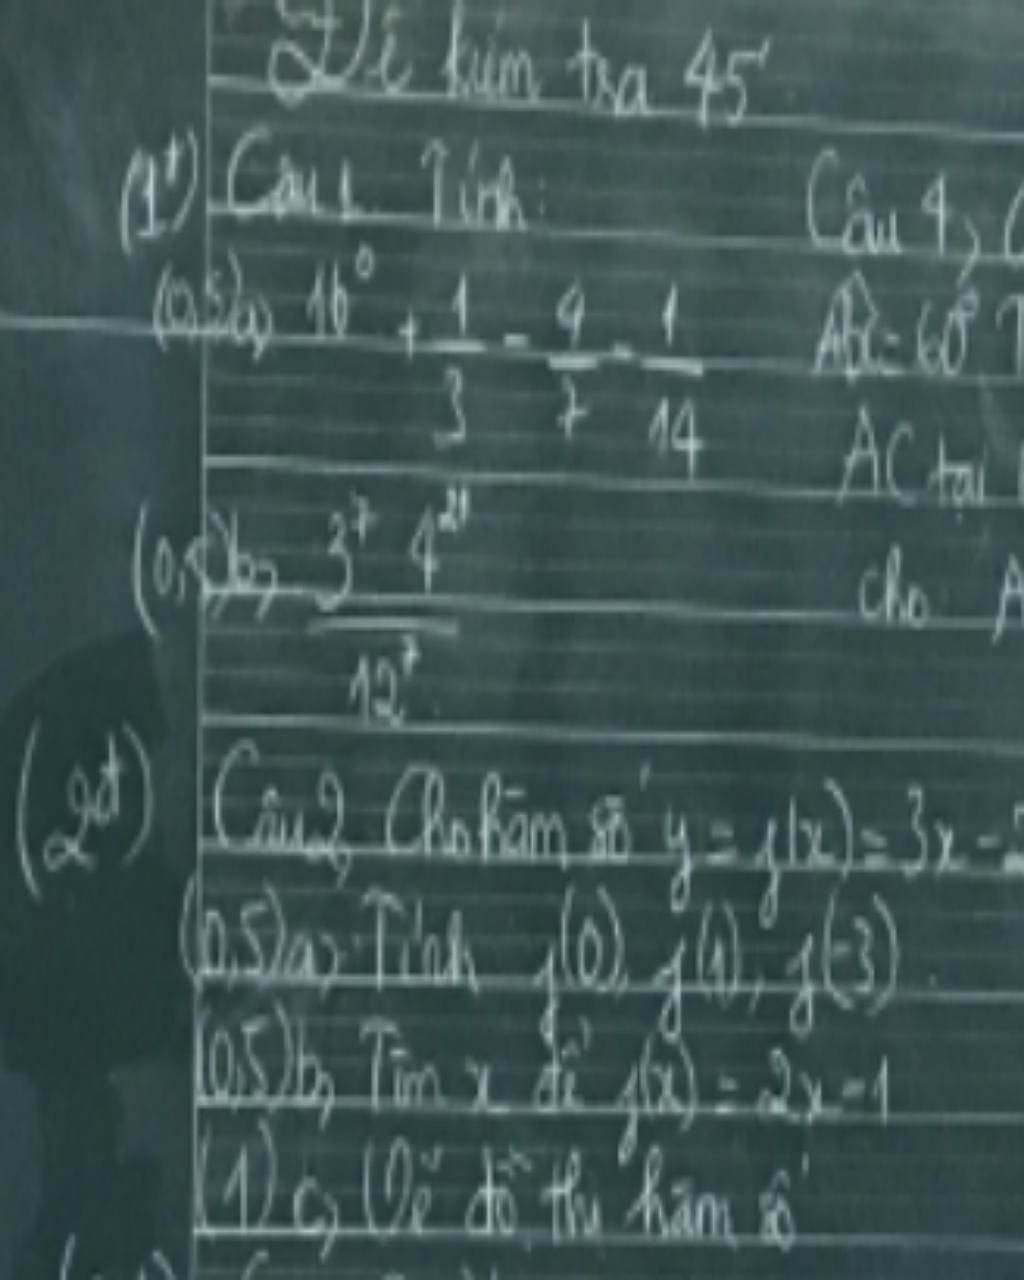 Đề kiểm tra 45'
(1đ) Câu 1. Tính:
(0,5) a, 16⁰ + 1/3 - 4/7 - 1/14
(0,5) b, 3⁷ 4²¹ / 12⁷
(2đ) Câu 2, Cho hàm số y = f(x) = 3x -
(0,5) a, Tính f(0), f(1), f(-3)
(0,5) b, Tìm x để f(x) = 2x - 1
(1) c, Vẽ đồ thị hàm số
Câu 4,
= 60°
AC tại
cho A